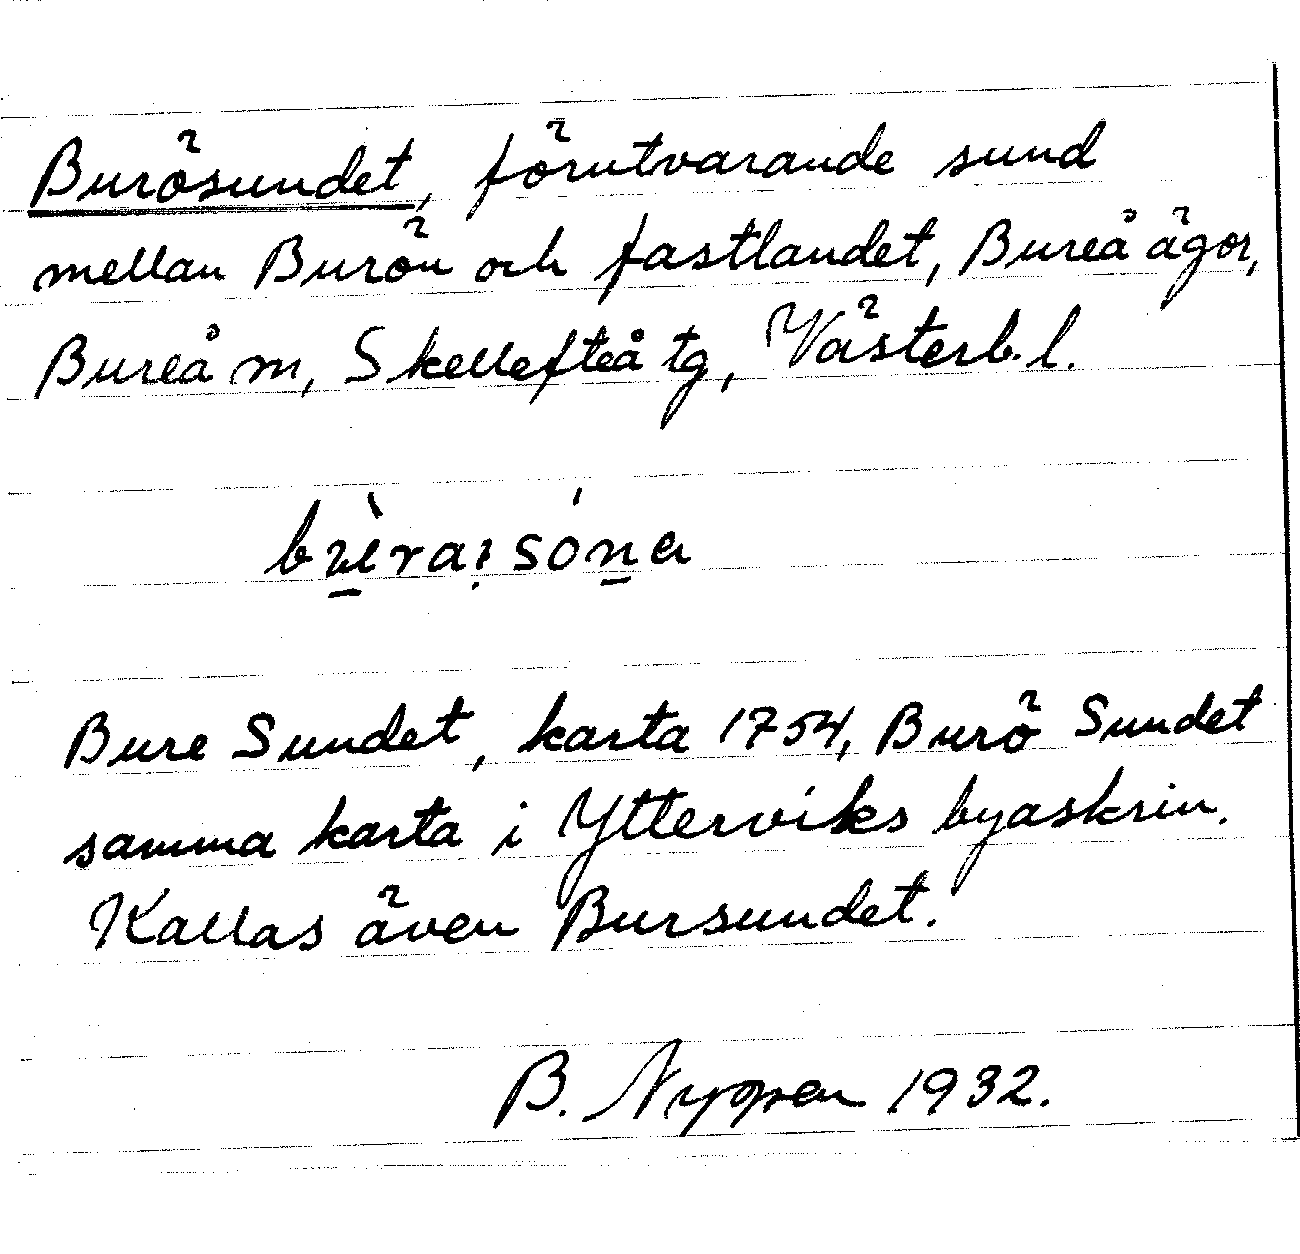 Burösundet, förutvarande sund
mellan Burön och fastlandet, Bureå ägor,
Bureå m, Skellefteå tg, Västerb. l.
Bure Sundet, karta 1754, Burö Sundet
samma karta i Ytterviks byaskrin.
Kallas även Bursundet.
B. 1932.